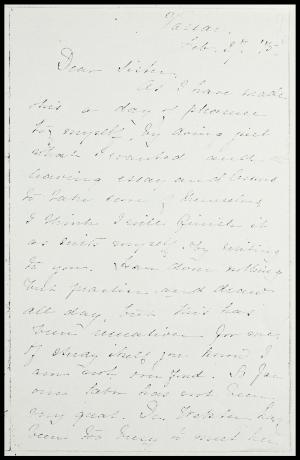 Vassar.
Feb. 9th, '75
Dear Sister,
As I have made
this a day of pleasure
to myself, by doing just
what I wanted and
leaving essay and lessons
to take care of themselves
I think I will finish it
as suits myself, by writing
to you. I have done nothing
but practise and draw
all day, but this has
been recreation for me,
of study itself you know I
am not over fond.
our has not been
very great. Dr.
been too busy to